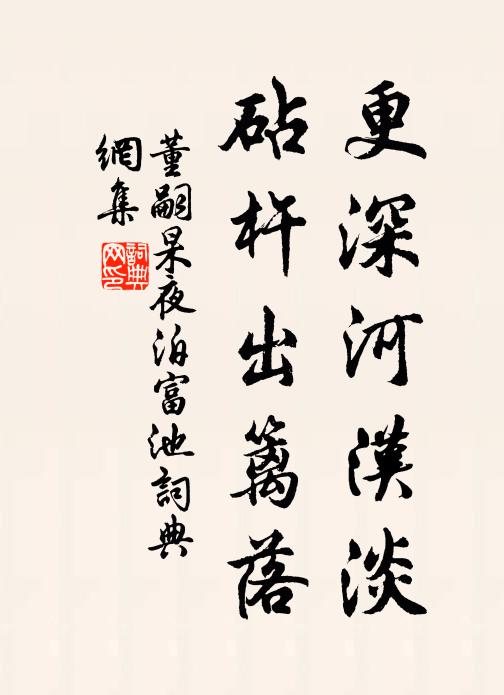 更深河漢淡
砧杵出籬落
董嗣杲夜泊富池詞典
網集
詞典網印